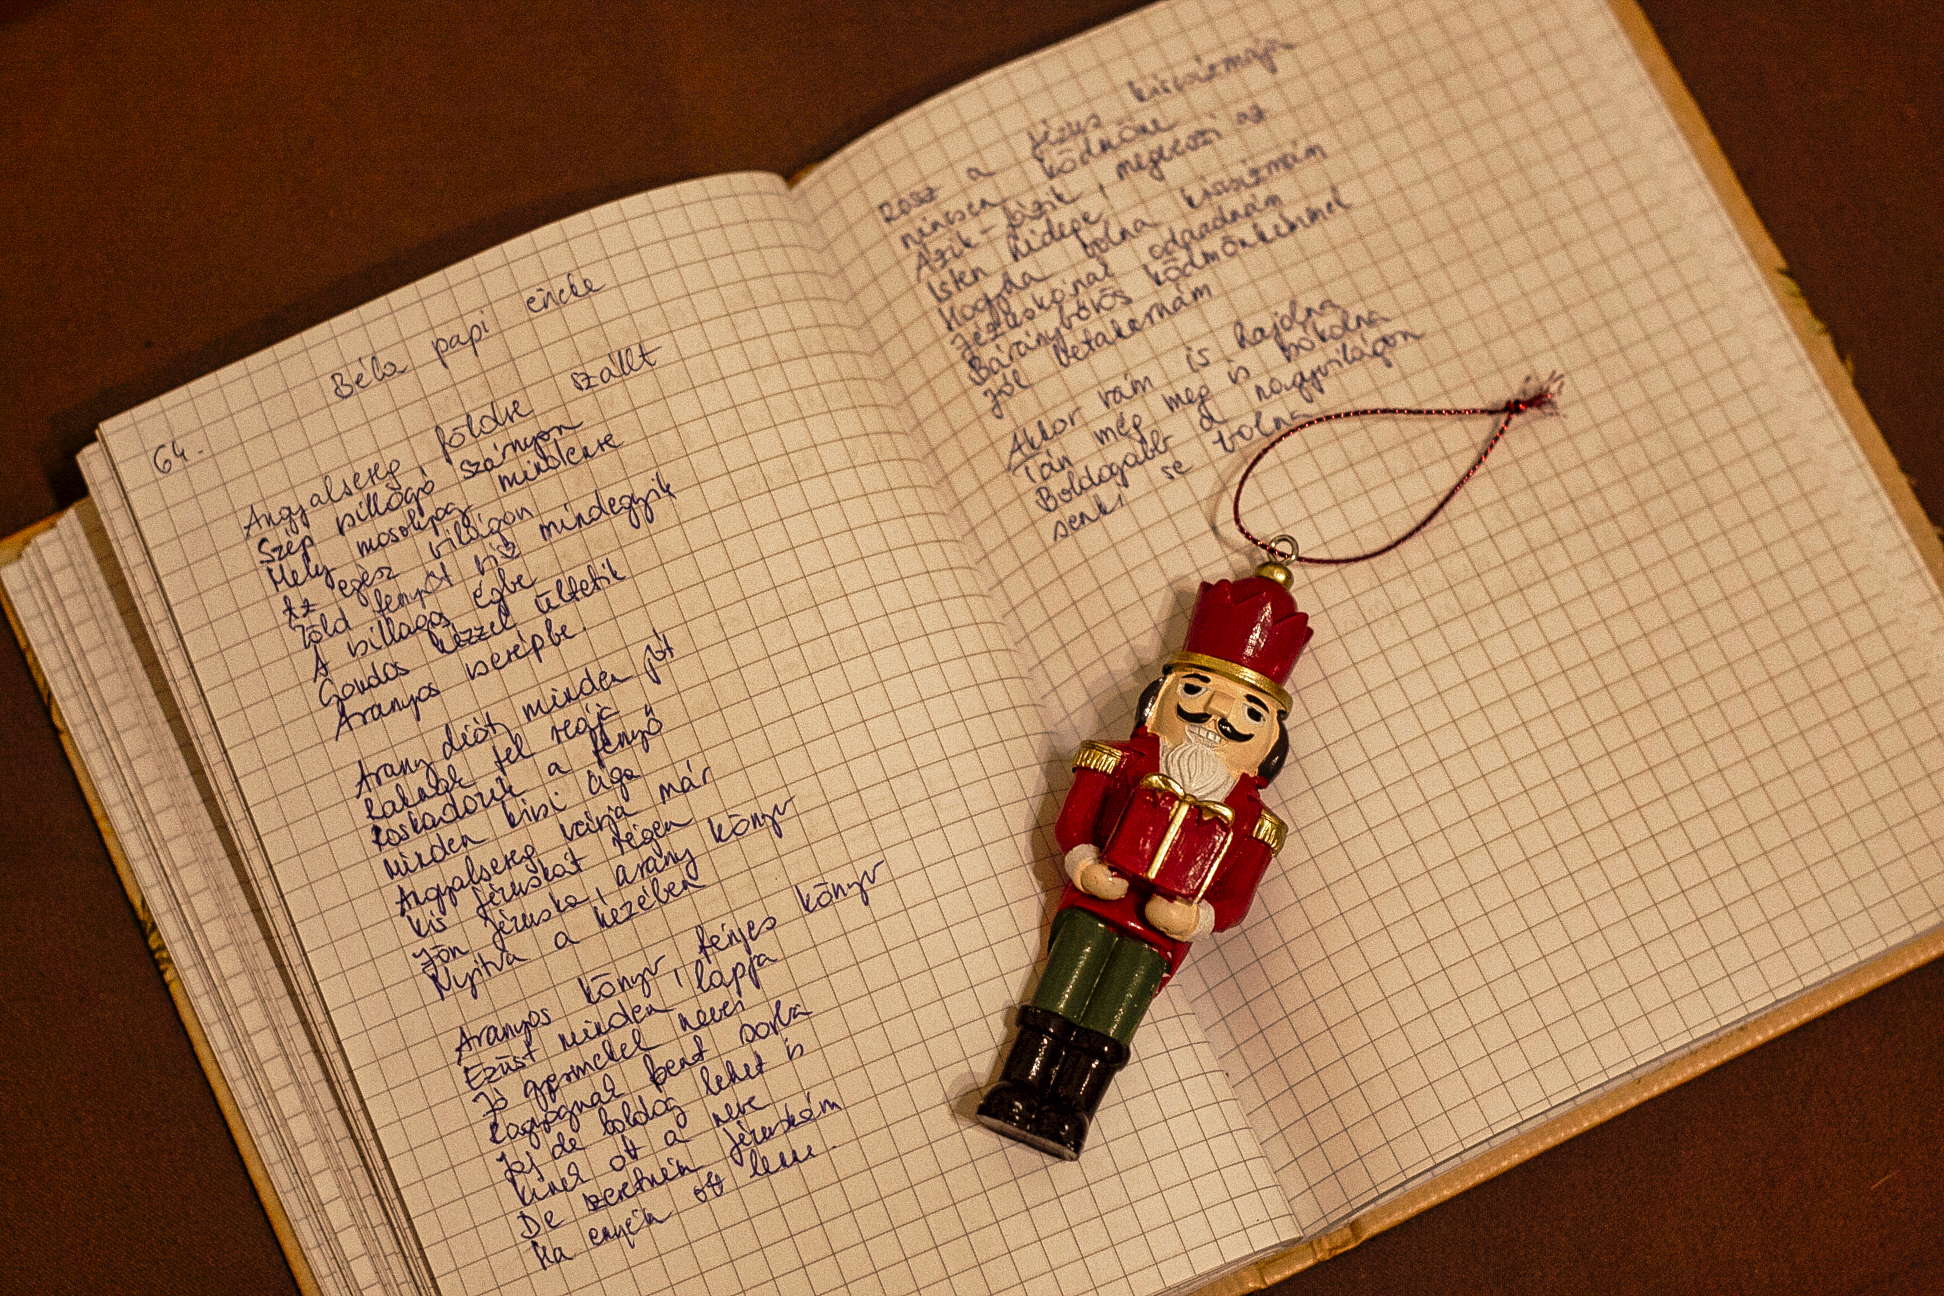 Béla papi éneke
64.
Angyalsereg földre szállt
Szép billogó szárnyon
Mely mosolyog mindenre
Az egész világon
Zöld fenyőt visz mindegyik
A billagos égbe
Gondos kézzel ültetik
Aranyos cserépbe.
Arany diót, minden jót
Raknak fel reája
Roskadozik a fenyő
minden kisi ága
Angyalsereg várja már
kis Jézuskát régen
Jön Jézuska, arany könyv
Nyitva a kezében
Aranyos könyv, fényes könyv
Ezüst minden lapja
Jó gyermekek nevei
Ragyognak bent sorba
Jaj de boldog lehet is
kinek ott a neve
De szeretném Jézuskám
Ha enyém ott lenne.
Rossz a Jézus kiscsizmája
nincsen ködmöne
Ázik-fázik, megveszi az
Isten hidege,
Hogyha volna kiscsizmám
Jézuskának odaadnám
Báránybőrös ködmönkémmel
Jól betakarnám
Akkor rám is hajolna
Tán még meg is bókolna
Boldogabb a nagyvilágon
senki se volna